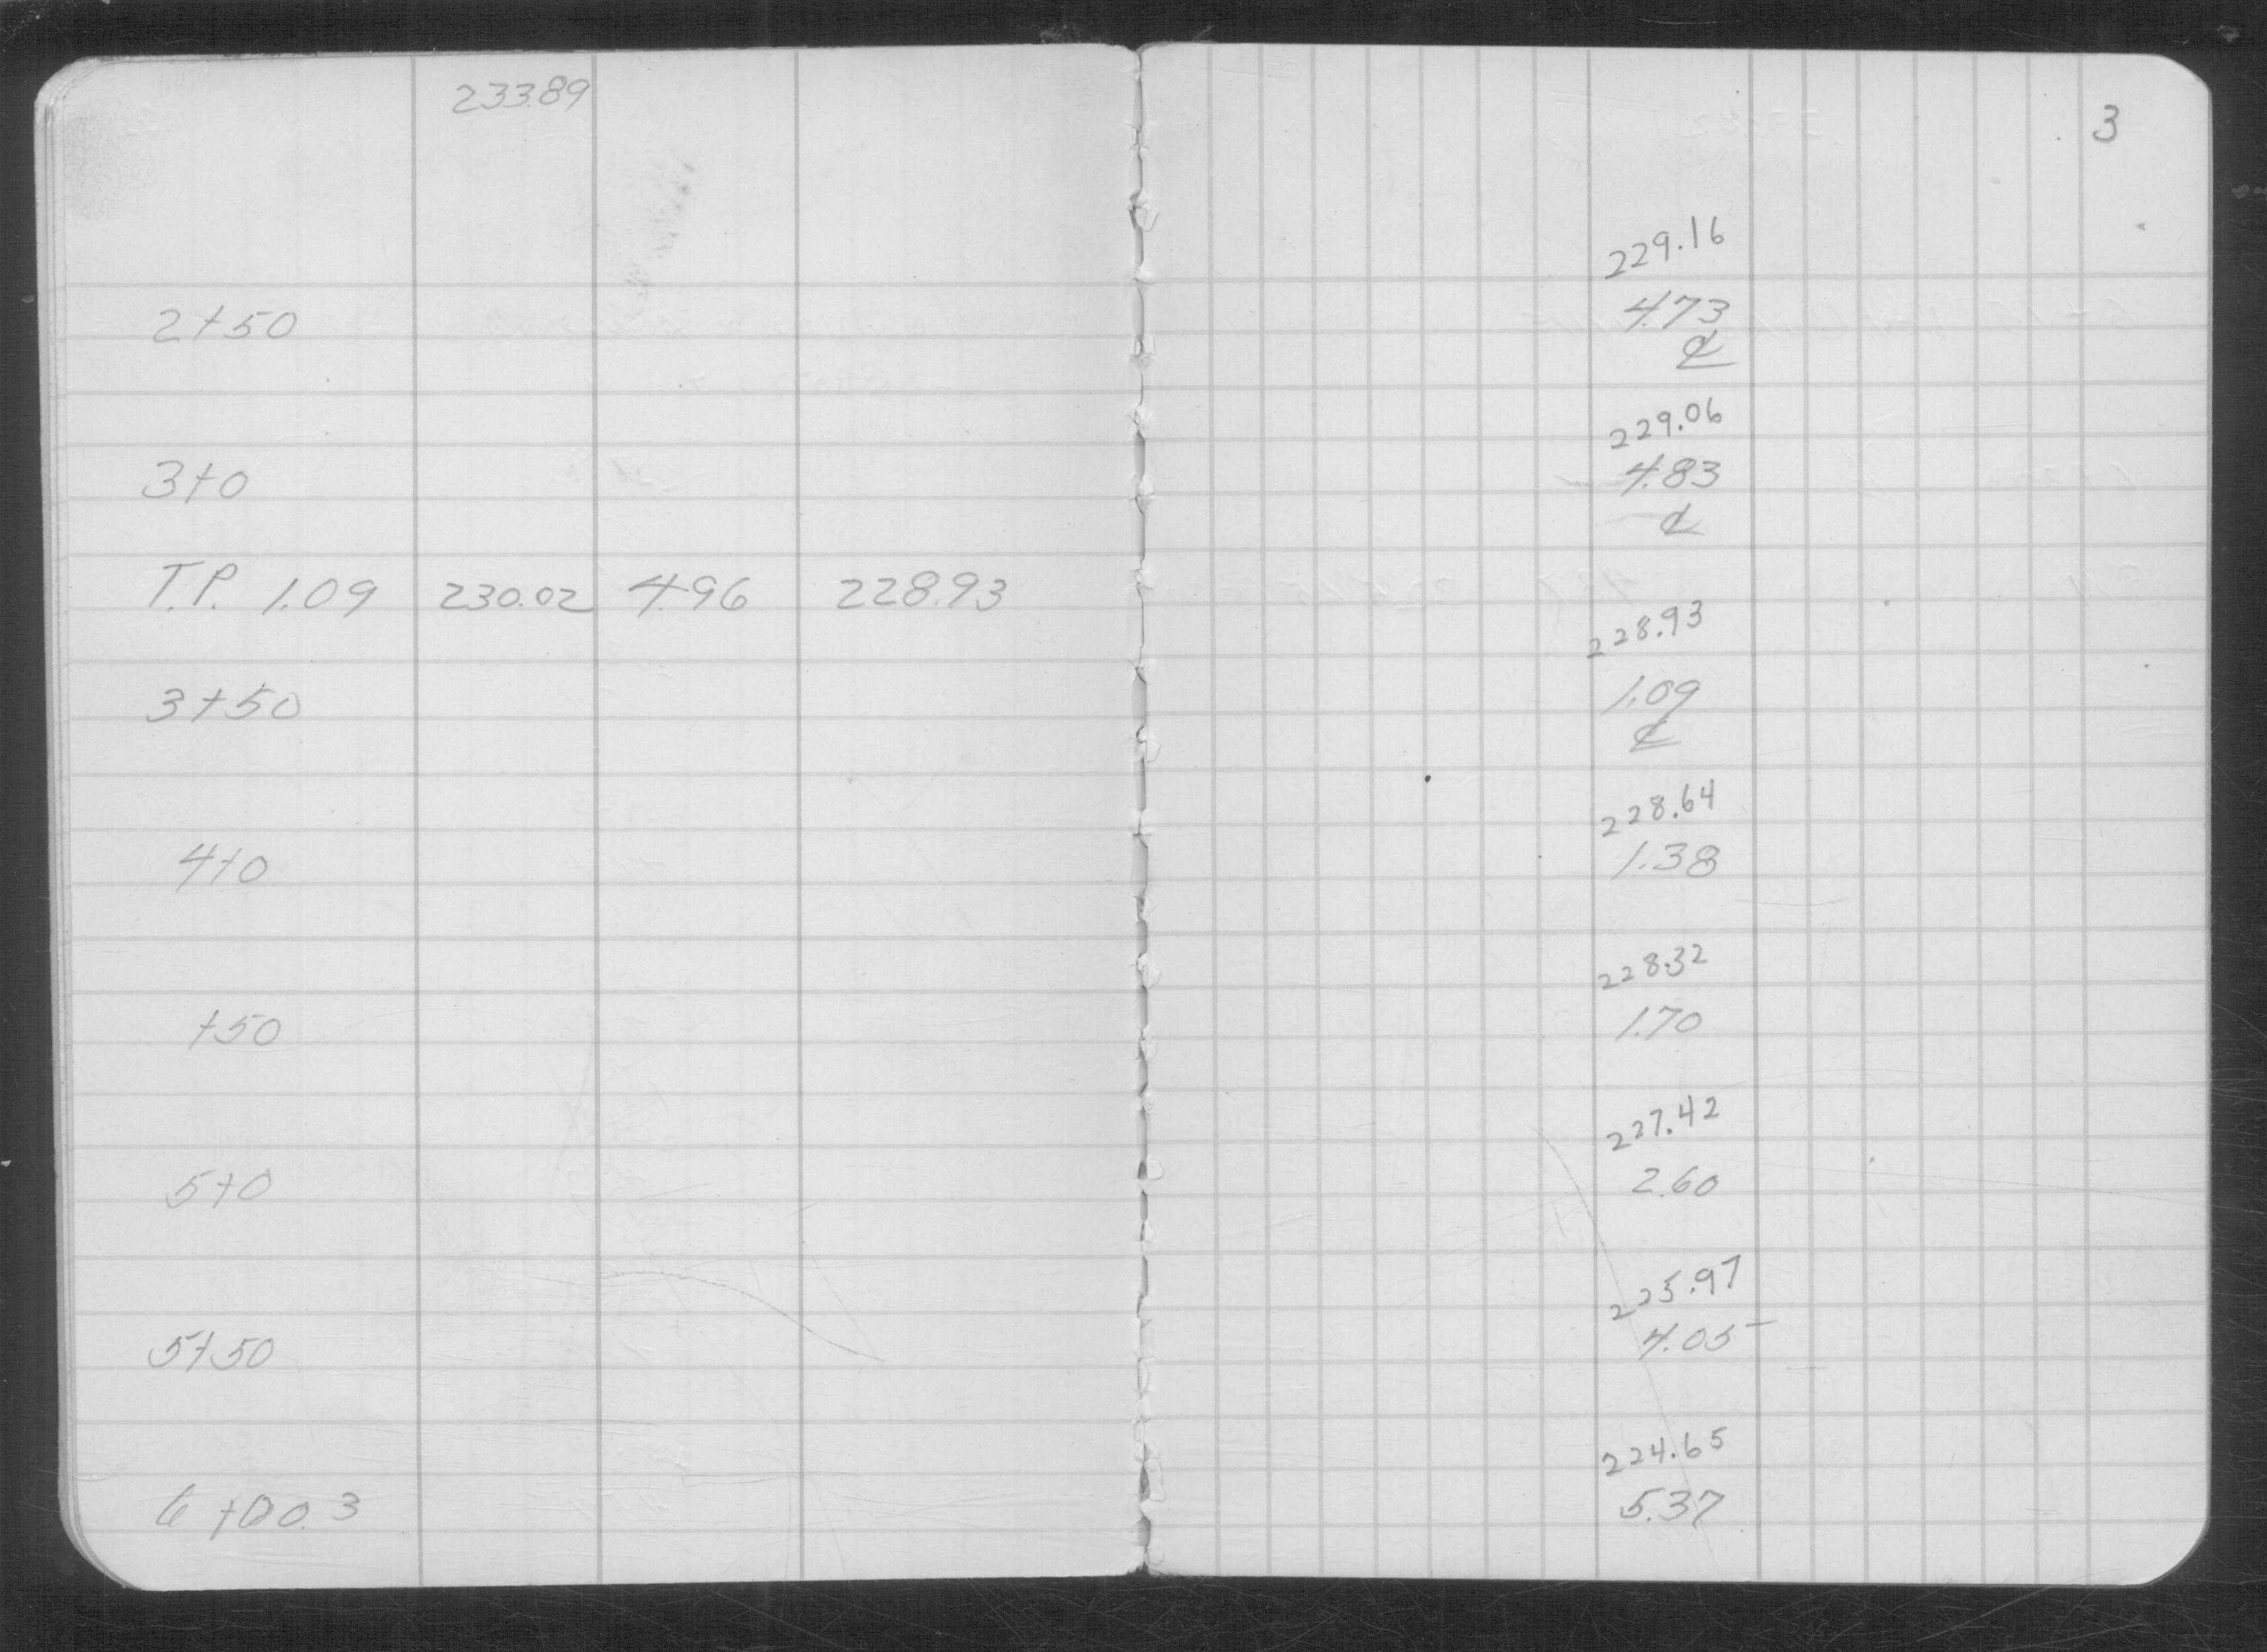 233.89
2+50
3+0
T.P. 1.09 230.02 4.96 228.93
3+50
4+0
+50
5+0
5+50
6+00.3
3
229.16
4.73
℄
229.06
4.83
℄
228.93
1.09
℄
228.64
1.38
228.32
1.70
227.42
2.60
225.97
4.05
224.65
5.37